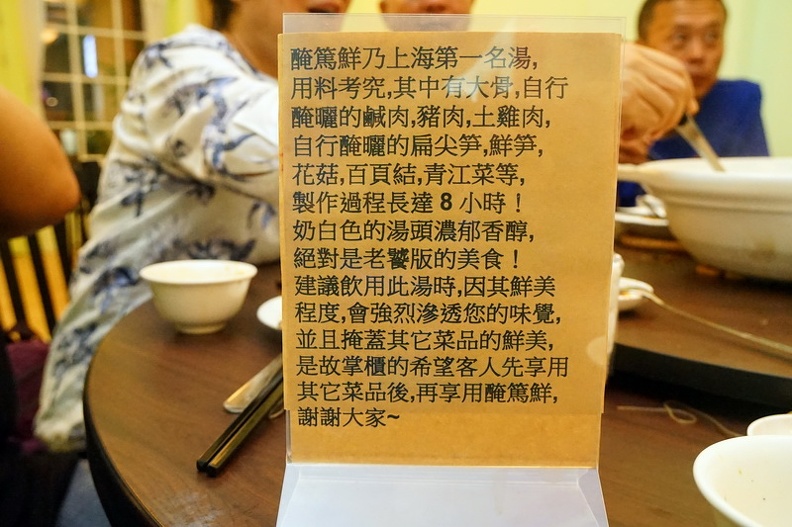 醃篤鮮乃上海第一名湯,
用料考究,其中有大骨,自行
醃曬的鹹肉,豬肉,土雞肉,
自行醃曬的扁尖笋,鮮笋,
花菇,百頁結,青江菜等,
製作過程長達8小時！
奶白色的湯頭濃郁香醇,
絕對是老饕版的美食！
建議飲用此湯時,因其鮮美
程度,會強烈滲透您的味覺,
並且掩蓋其它菜品的鮮美,
是故掌櫃的希望客人先享用
其它菜品後,再享用醃篤鮮,
謝謝大家~